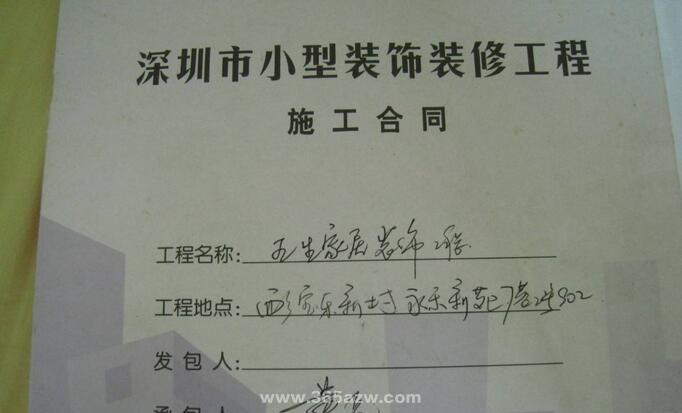 深圳市小型装饰装修工程
施工合同
工程名称: 王生家居装饰工程
工程地点: 西乡乐新村永乐新苑7栋2单502
发包人:
承包人
www.365azw.com